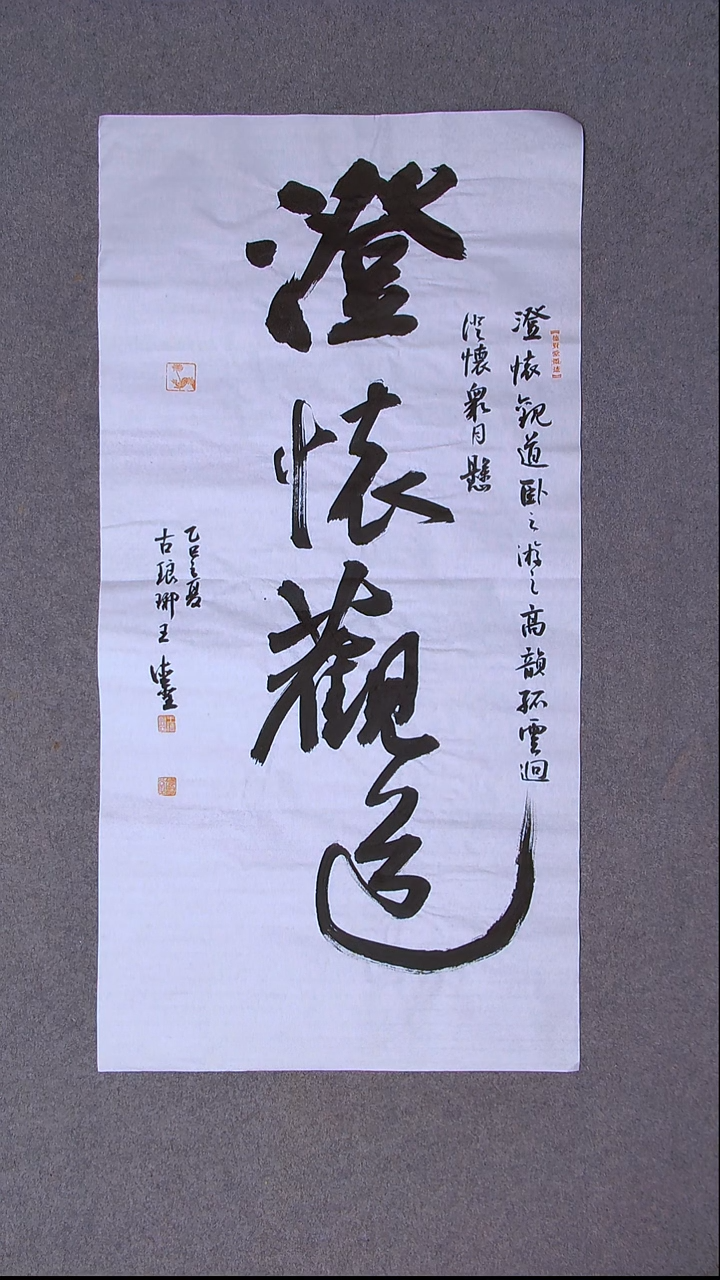 澄懷觀道
澄懷觀道卧之游之高韻孤雲迥
澄懷衆月懸
乙巳之夏
古琅琊王